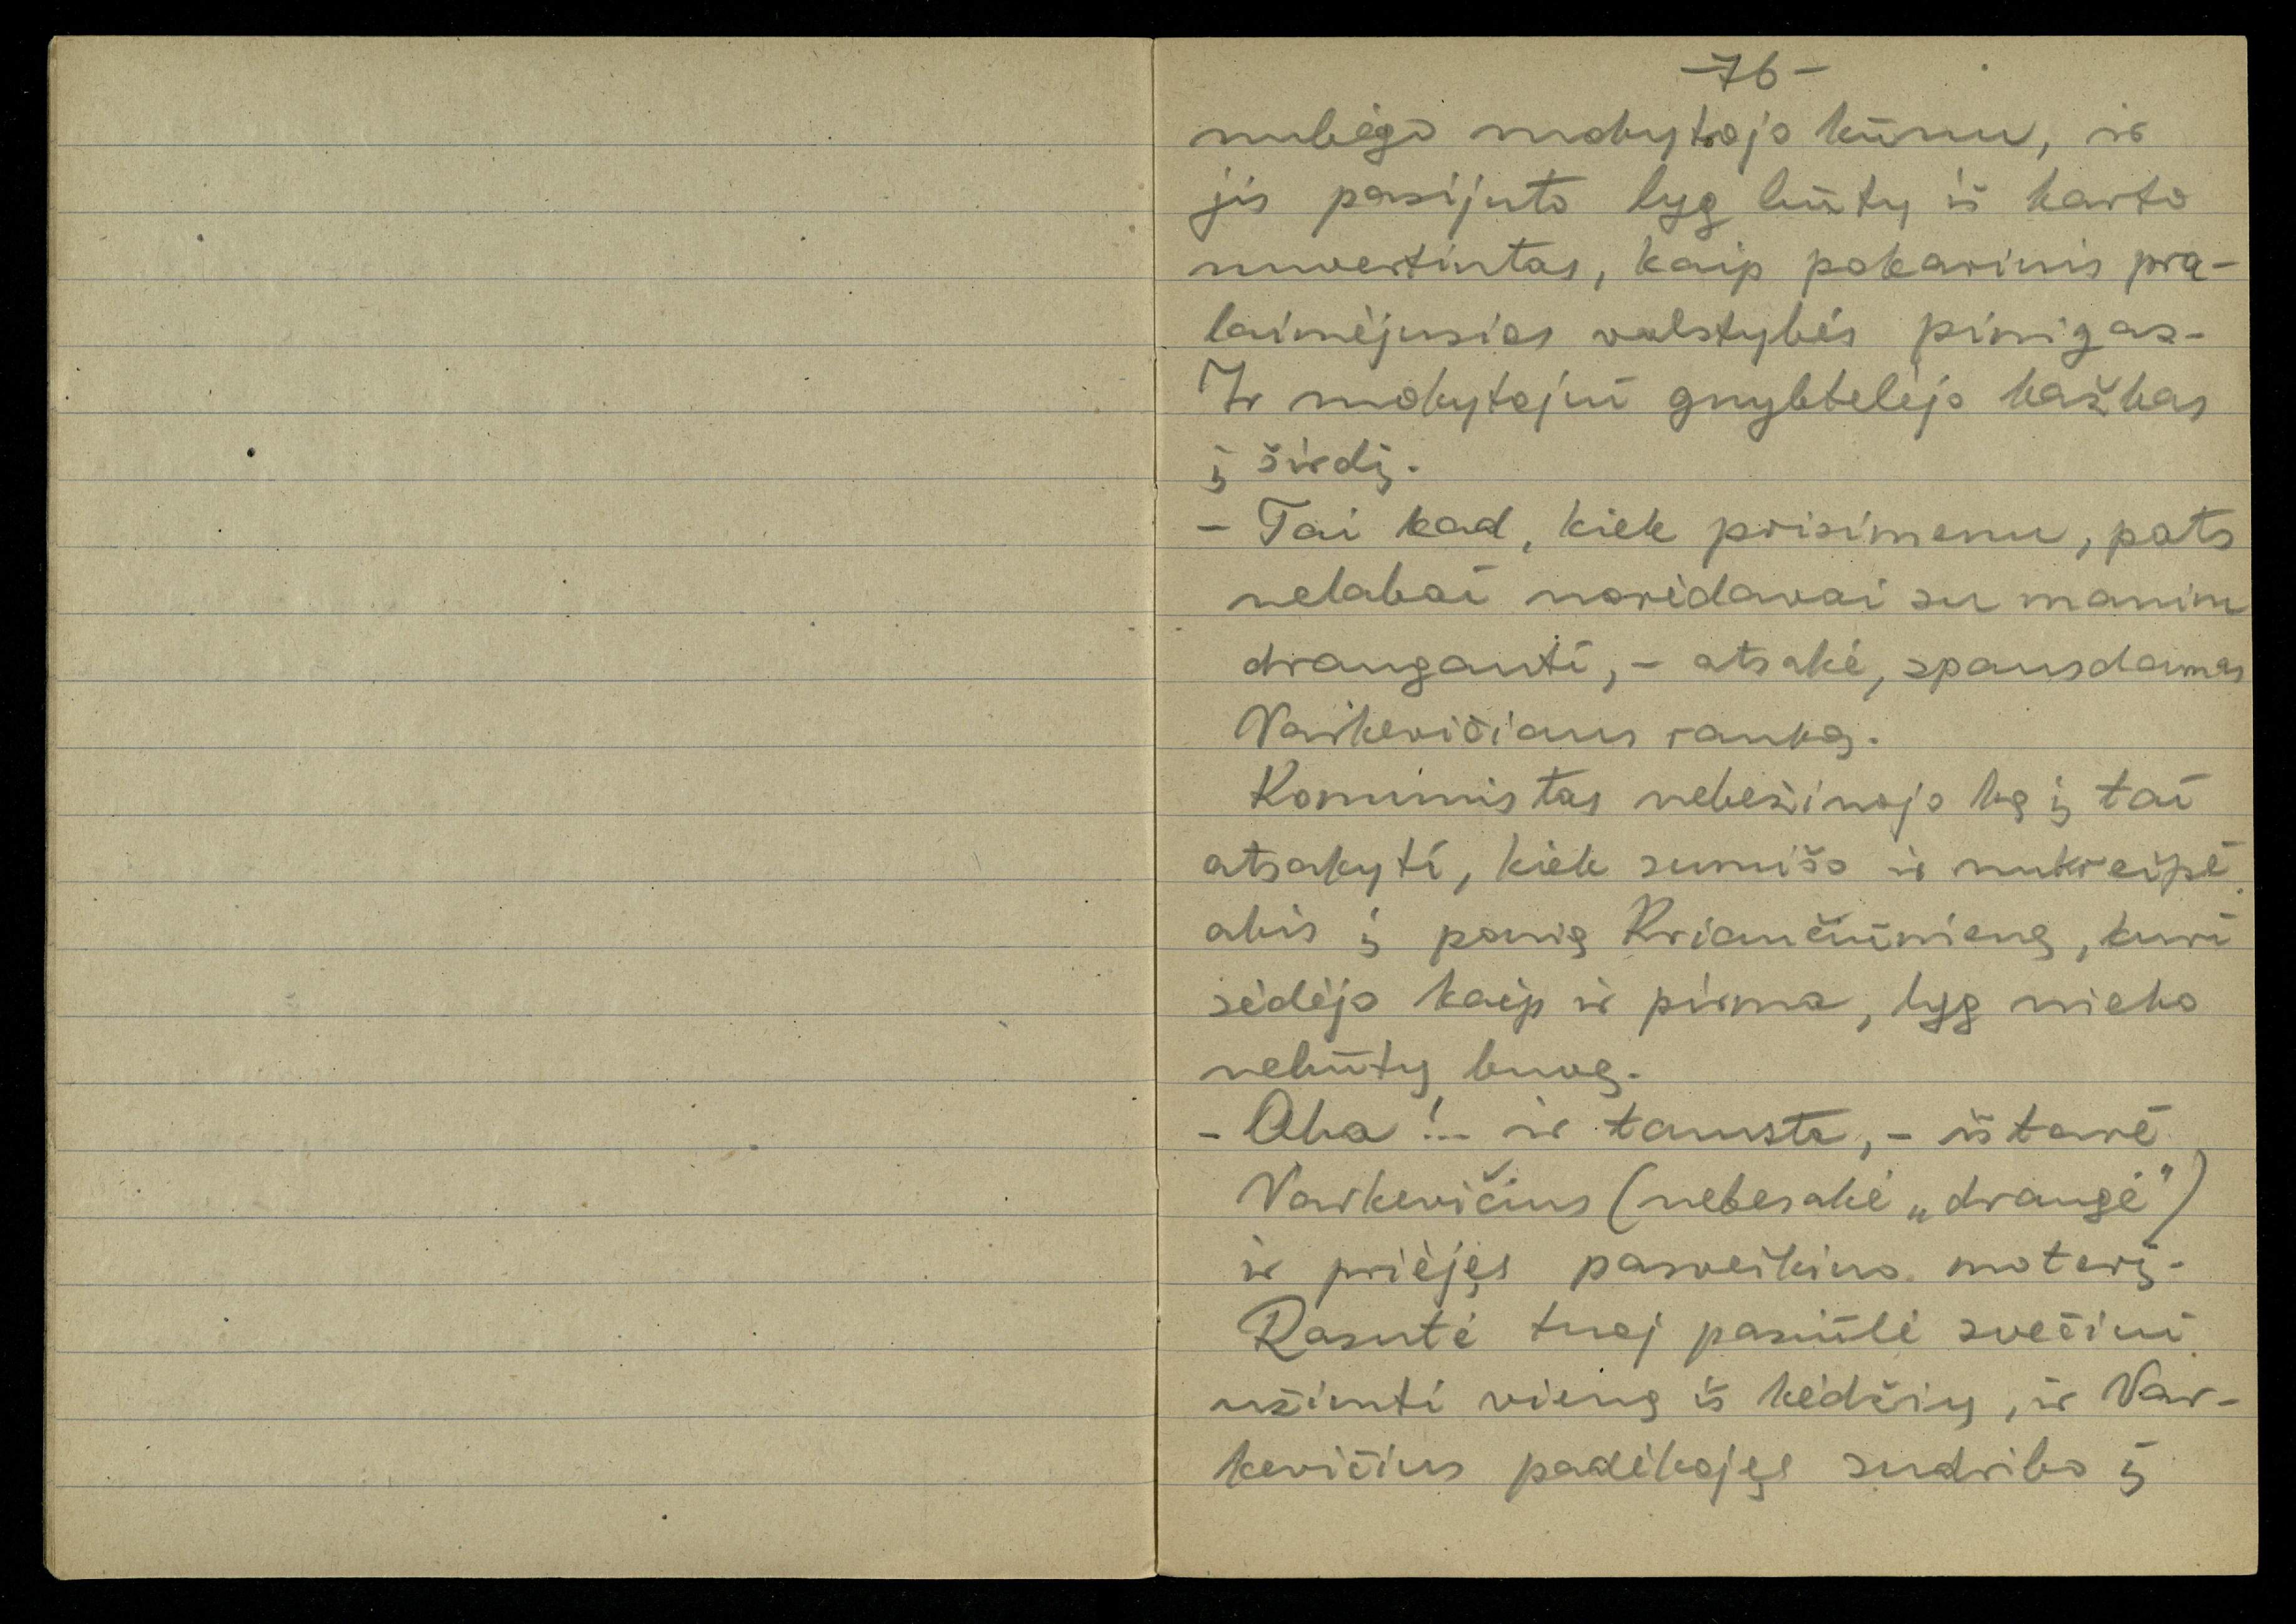 -76-
nubėgo mokytojo kūnu, ir
jis pasijuto lyg būtų iš karto
nuvertintas, kaip pokarinis pra-
laimėjusios valstybės pinigas.
Ir mokytojui gnybtelėjo kažkas
į širdį.
- Tai kad, kiek prisimenu, pats
nelabai norėdavai su manim
draugauti, - atsakė, spausdamas
Varkevičiaus ranką.
Komunistas nebežinojo ką į tai
atsakyti, kiek sumišo ir nukreipė
akis į ponią Kriaučiūnienę, kuri
sėdėjo kaip ir pirma, lyg nieko
nebūtų buvę.
- Aha!.. ir tamsta, - ištarė
Varkevičius (nebesakė „drauge")
ir priėjęs pasveikino moterį.
Rasutė tuoj pasiūlė svečiui
užimti vieną iš kėdžių, ir Var-
kevičius padėkojęs sudribo į